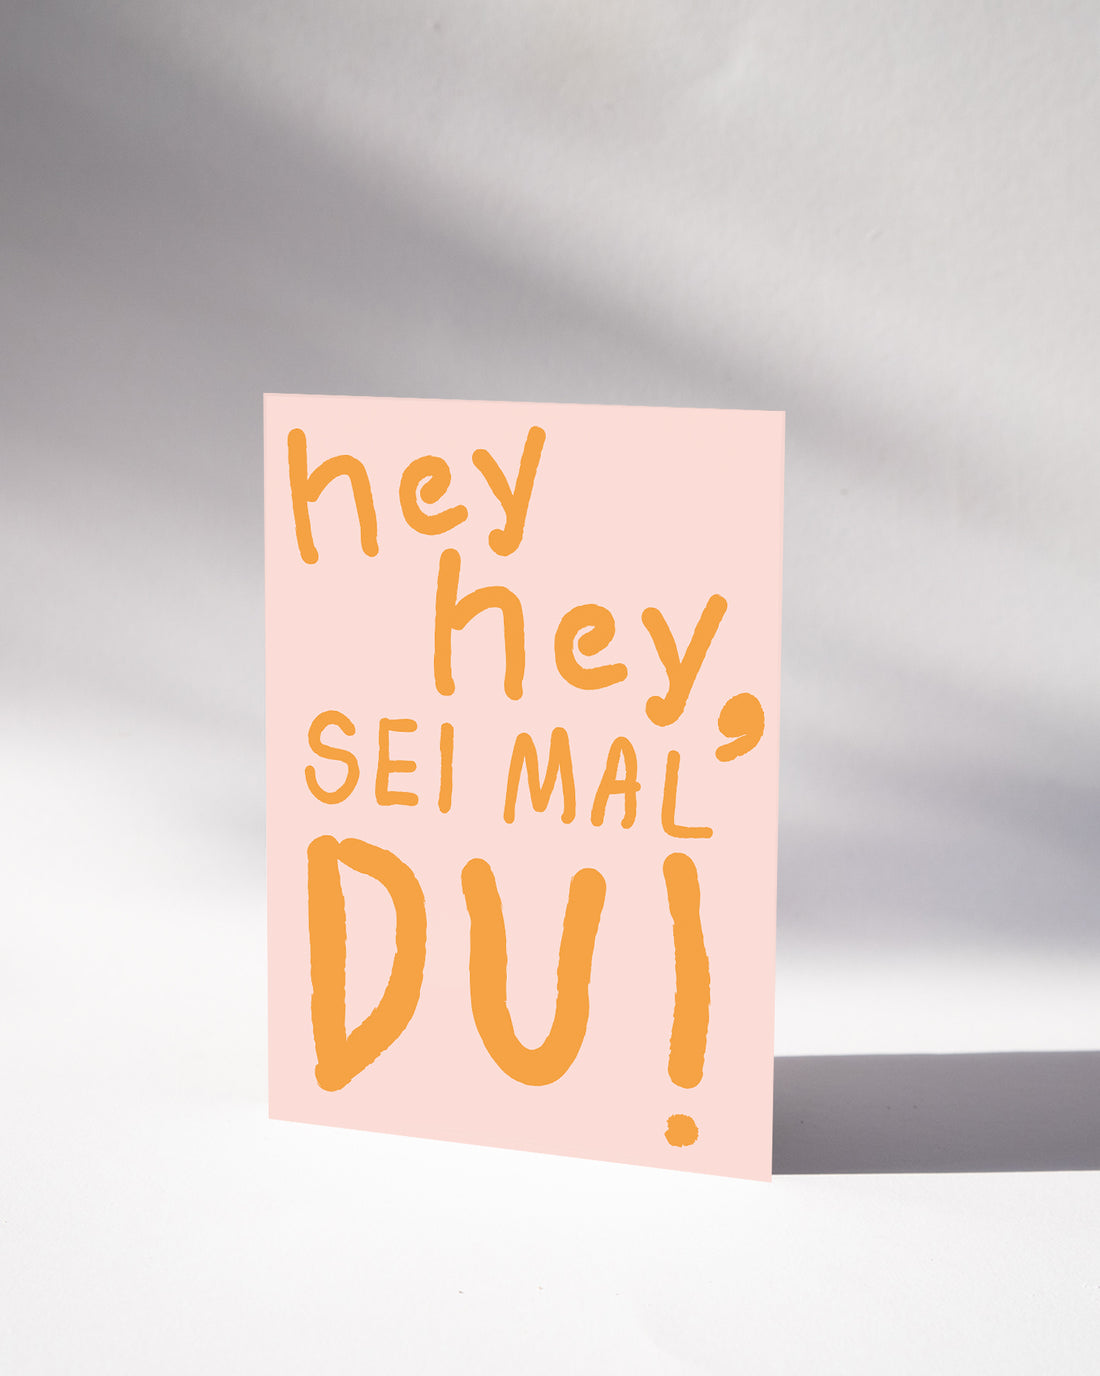 hey
hey,
SEI MAL
DU!